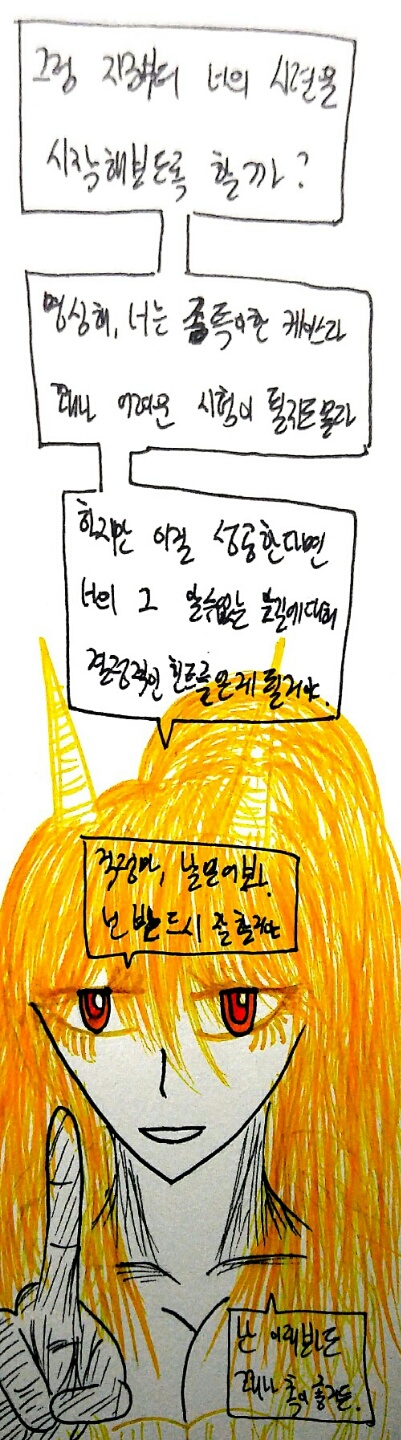 그럼 지금부터 너의 시련을
시작해보도록 할까?
명심해, 너는 좀 특이한 케이스라
꽤나 어려운 시험이 될지도 몰라
하지만 이걸 성공한다면
너의 그 알수없는 눈길에 대해
결정적인 힌트를 얻게 될거야.
걱정마, 날 믿어봐.
넌 반드시 잘 할거야
난 이래봬도
꽤나 촉이 좋거든.